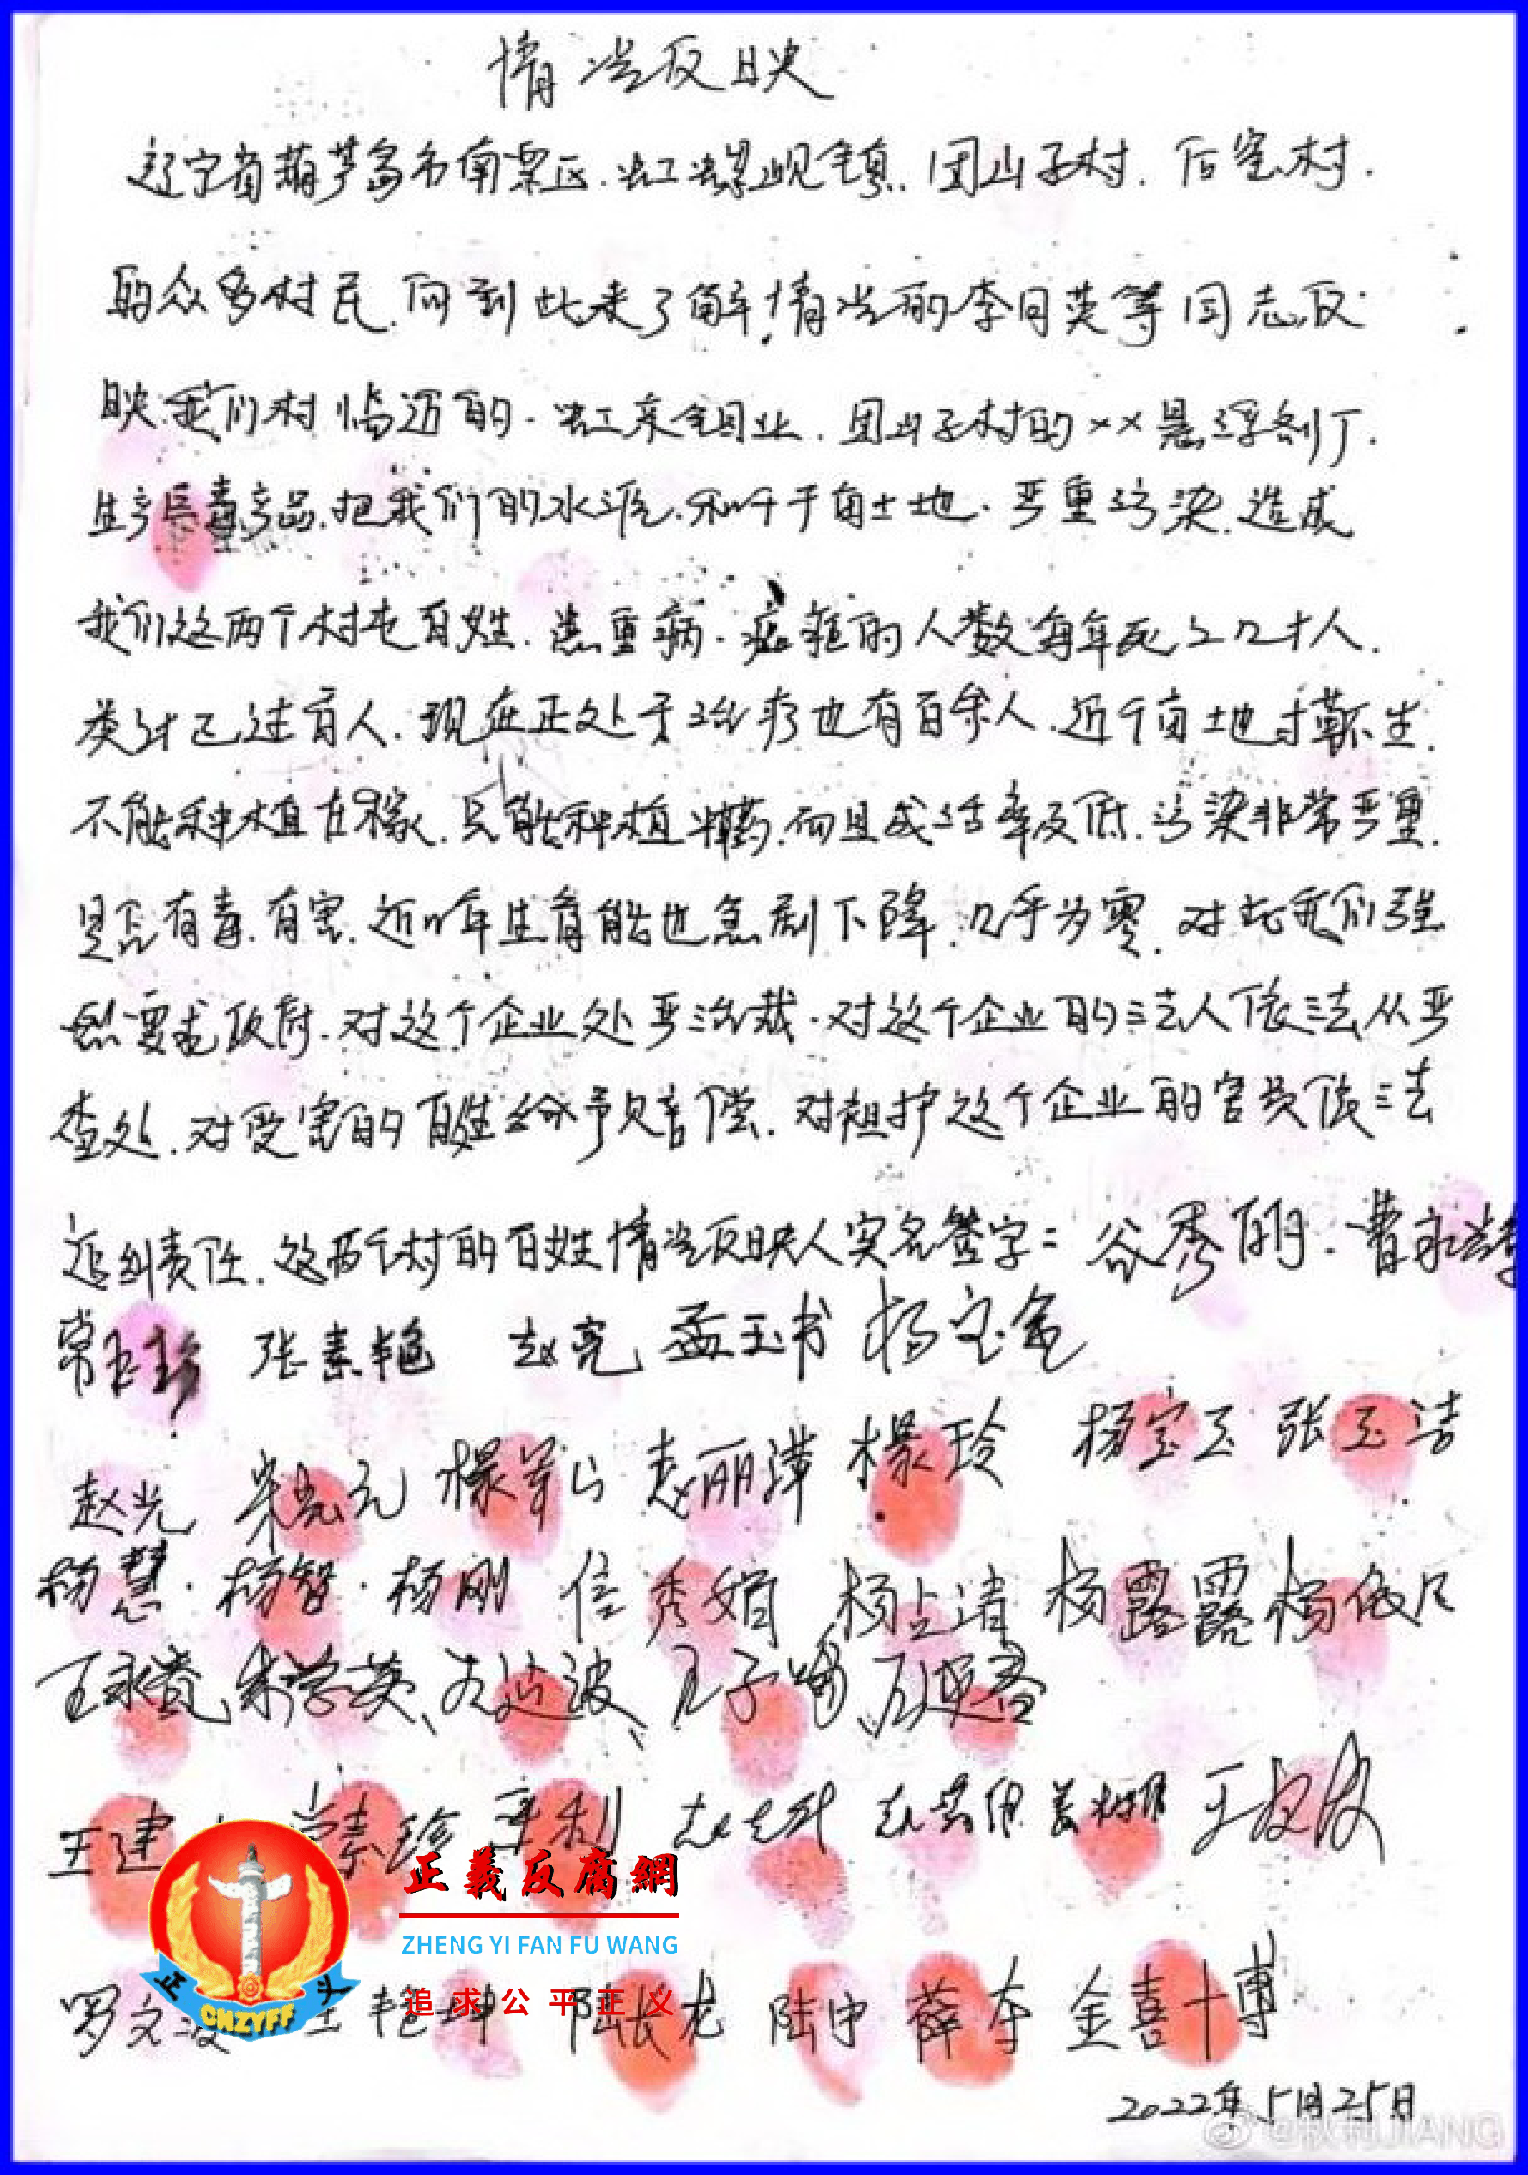 情况反映
辽宁省葫芦岛市南票区.缸窑岭镇.团山子村.后窑村.
的众多村民.向到此来了解情况的李同英等同志反
映.我们村临近的.虹京钼业.团山子村的××悬浮剂厂.
生产巨毒产品.把我们的水源.和千亩土地.严重污染.造成
我们这两个村屯百姓.患重病.癌症的人数每年死亡几十人.
类计已过百人.现在正处于治疗也有百余人.近千亩土地寸草不生.
不能种植庄稼.只能种植中草药.而且成活率及低.污染非常严重.
是否有毒.有害.近几年生育能也急剧下降.几乎为零.对此我们强
烈要求政府.对这个企业处严治裁.对这个企业的法人依法从严
查处.对受害的百姓给予赔偿.对袒护这个企业的官员依法
追纠责任.这两个村的百姓情况反映人实名签字: 谷秀丽.曹永
常玉珍 张素艳 赵亮 孟玉书 杨宝金
赵光 赵丽萍 杨宝玉 张玉洁
杨慧.杨智.杨刚 信秀娟 杨上清 杨露露 杨依凡
王永贵 朱学英
王建 常素珍 王权波
罗文 王艳坤 陆长龙 陆中 薛 金喜博
2022年5月25日
正義反腐網
ZHENG YI FAN FU WANG
追求公平正义
正 义
CNZYFF
JIANG